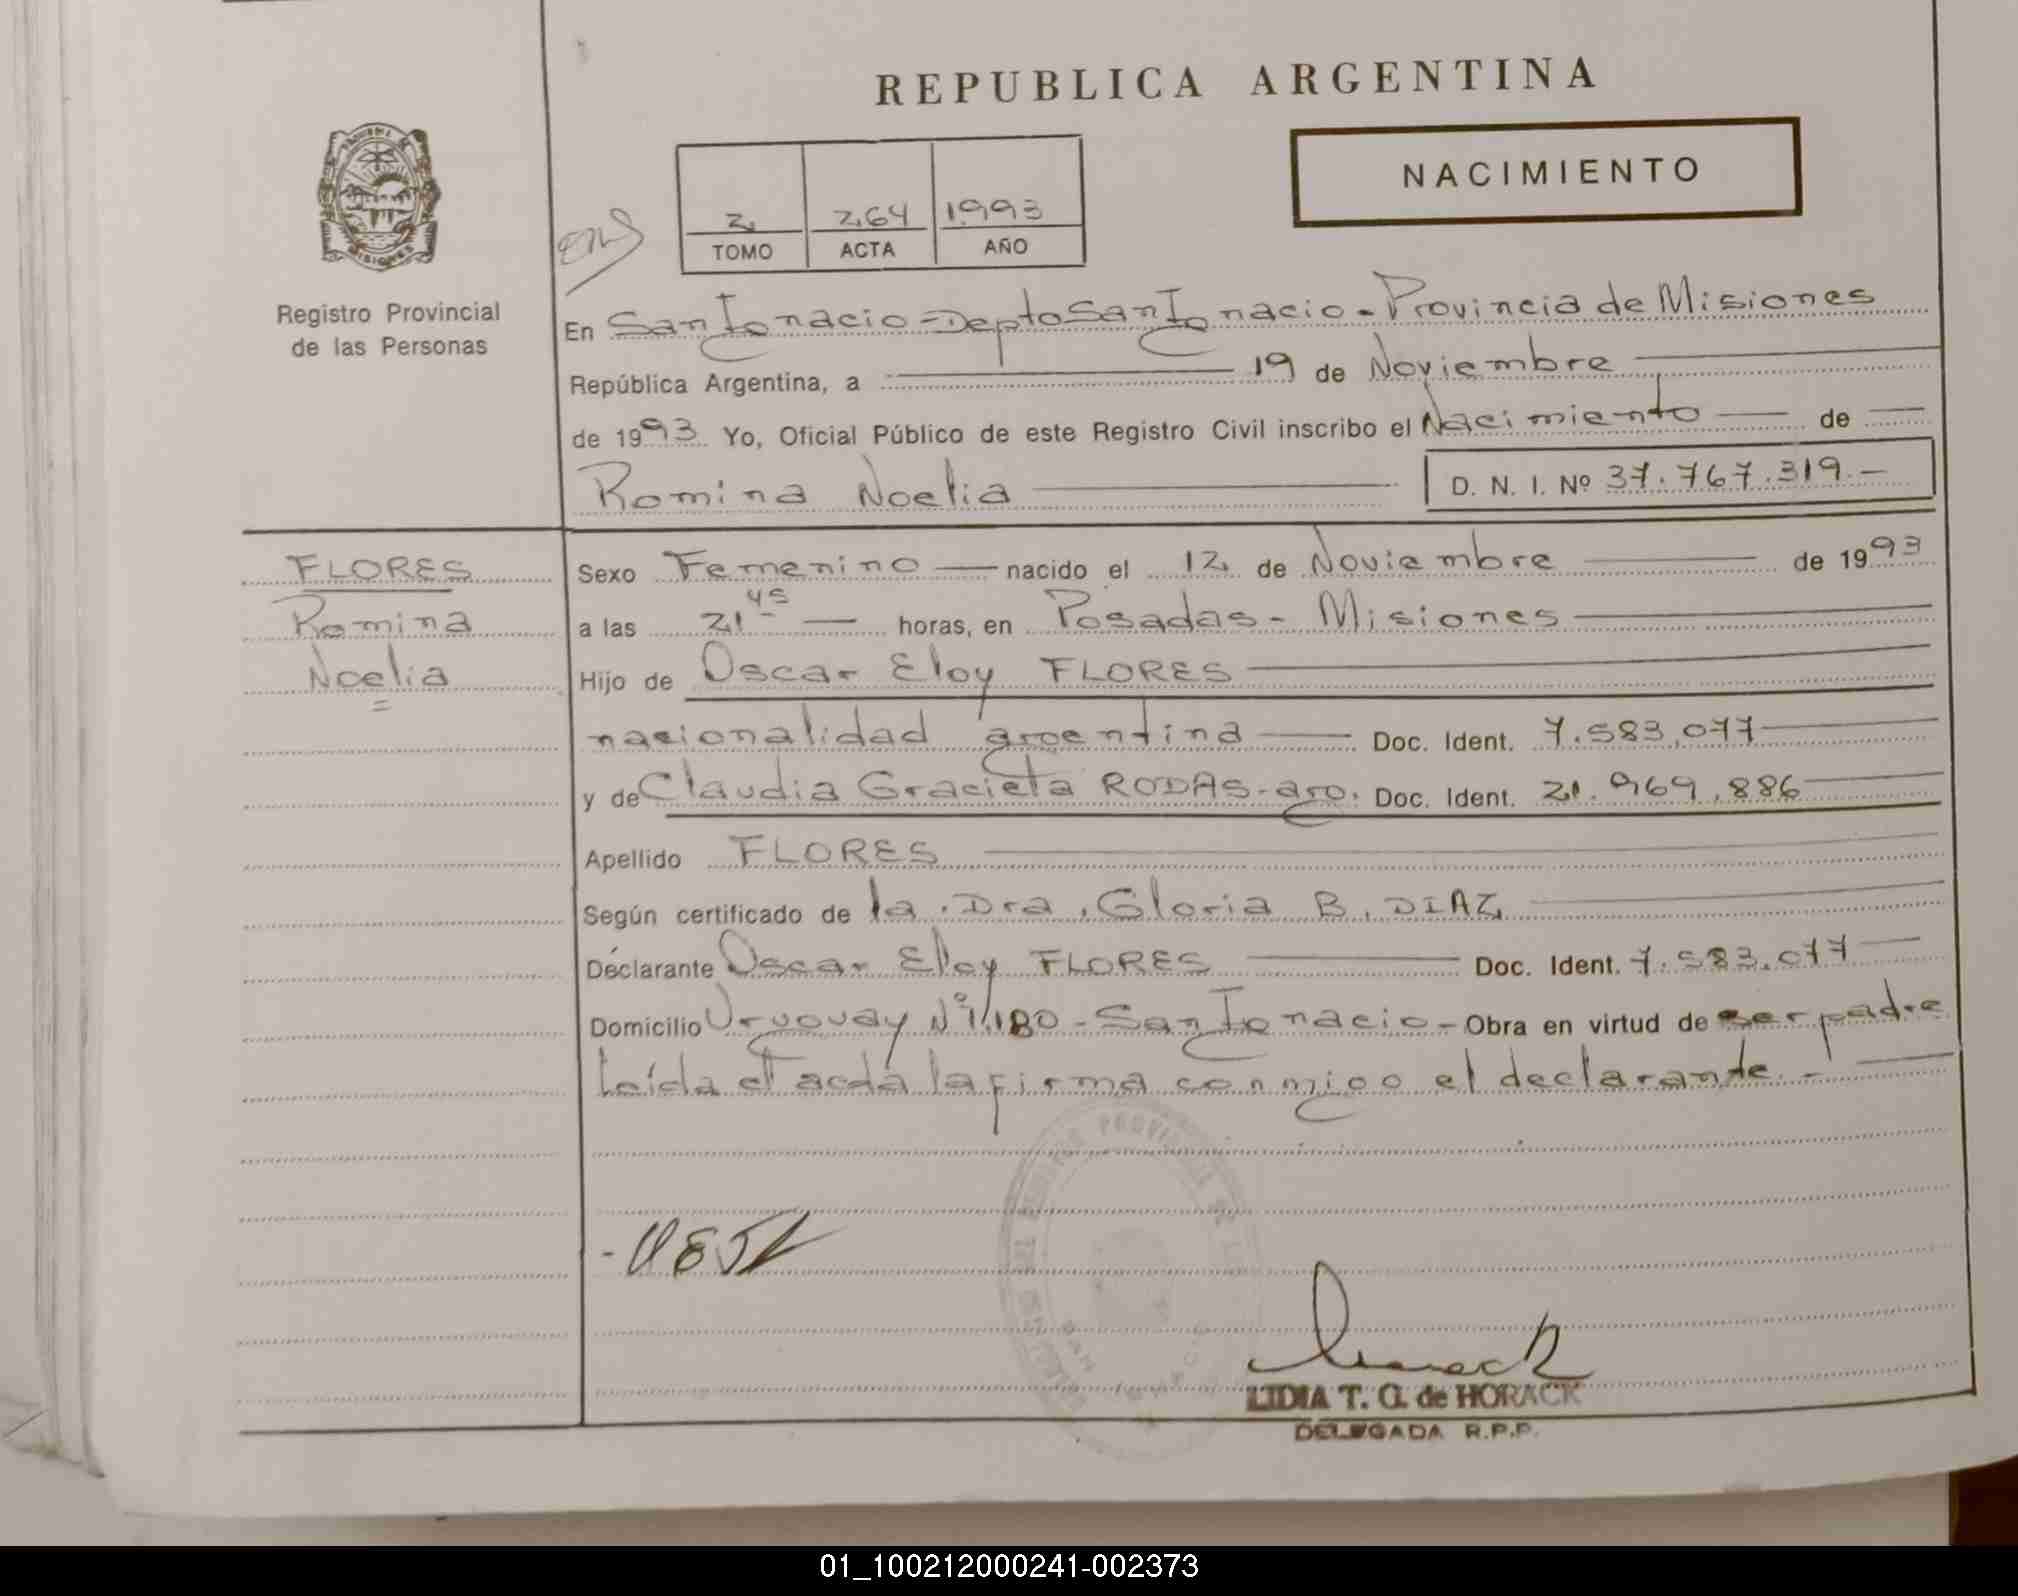 REPUBLICA ARGENTINA
NACIMIENTO
2 264 1993
TOMO ACTA AÑO
MISIONES
Registro Provincial
de las Personas
En San Ignacio - Depto San Ignacio - Provincia de Misiones
República Argentina, a 19 de Noviembre
de 1993 Yo, Oficial Público de este Registro Civil inscribo el Nacimiento de
Romina Noelia D. N. I. Nº 37.767.319.-
FLORES
Romina
Noelia
Sexo Femenino nacido el 12 de Noviembre de 1993
a las 21 45 horas, en Posadas - Misiones
Hijo de Oscar Eloy FLORES
nacionalidad argentina Doc. Ident. 7.583.077
y de Claudia Graciela RODAS - arg. Doc. Ident. 21.969.886
Apellido FLORES
Según certificado de la Dra. Gloria B. DIAZ
Declarante Oscar Eloy FLORES Doc. Ident. 7.583.077
Domicilio Uruguay Nº 1.180 - San Ignacio - Obra en virtud de ser padre
Leída el acta la firma conmigo el declarante. -
LIDIA T. G. de HORACK
DELEGADA R.P.P.
01_100212000241-002373